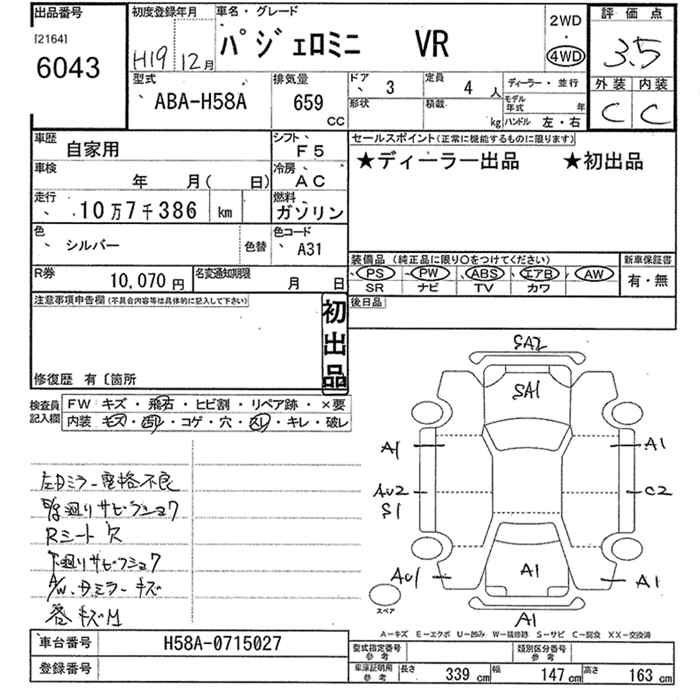 出品番号
[2164]
6043
初度登録年月
H19 12月
車名・グレード
パジェロミニ VR
2WD
・
4WD
評価点
3.5
外装 内装
C C
型式
ABA-H58A
排気量
659
CC
ドア
3
定員
4 人
ディーラー・並行
形状
積載
kg
モデル年式 年
ハンドル 左・右
車歴
自家用
シフト
F5
車検
年 月( 日)
冷房
AC
走行
10万7千386 km
燃料
ガソリン
色
シルバー
色替
色コード
A31
R券
10,070円
名変通知期限
月 日
セールスポイント(正常に機能するものに限ります)
★ディーラー出品 ★初出品
装備品(純正品に限り○をつけてください)
PS PW ABS エアB AW
SR ナビ TV カワ
新車保証書
有・無
後日品
注意事項申告欄(不具合内容等は具体的に記入して下さい)
初出品
修復歴 有〔箇所
検査員記入欄
FW キズ・飛石・ヒビ割・リペア跡・×要
内装 キズ・凹・コゲ・穴・スレ・キレ・破レ
左Dミラー電格不良
Rシート穴
A/W・Dミラーキズ
SA2
SA1
A1
A1
AU2
S1
C2
AU1
A1
A1
A1
スペア
A―キズ E―エクボ U―凹み W―補修跡 S―サビ C―腐食 XX―交換済
車台番号
H58A-0715027
登録番号
型式指定番号
参考
類別区分番号
参考
車庫証明用
参考
長さ 339 cm 幅 147 cm 高さ 163 cm